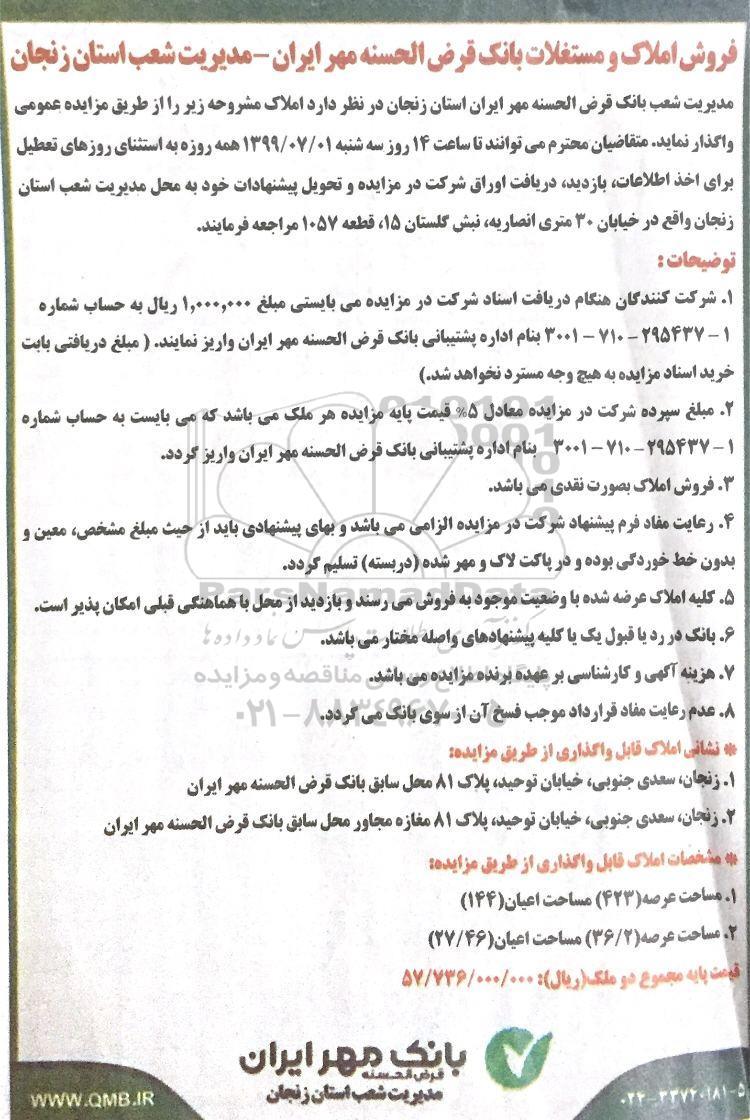 فروش املاک و مستغلات بانک قرض الحسنه مهر ایران - مدیریت شعب استان زنجان
مدیریت شعب بانک قرض الحسنه مهر ایران استان زنجان در نظر دارد املاک مشروحه زیر را از طریق مزایده عمومی
واگذار نماید. متقاضیان محترم می توانند تا ساعت ۱۴ روز سه شنبه ۱۳۹۹/۰۷/۰۱ همه روزه به استثنای روزهای تعطیل
برای اخذ اطلاعات، بازدید، دریافت اوراق شرکت در مزایده و تحویل پیشنهادات خود به محل مدیریت شعب استان
زنجان واقع در خیابان ۳۰ متری انصاریه، نبش گلستان ۱۵، قطعه ۱۰۵۷ مراجعه فرمایند.
توضیحات :
۱. شرکت کنندگان هنگام دریافت اسناد شرکت در مزایده می بایستی مبلغ ۱,۰۰۰,۰۰۰ ریال به حساب شماره
۱ - ۲۹۵۴۳۷ - ۷۱۰ - ۳۰۰۱ بنام اداره پشتیبانی بانک قرض الحسنه مهر ایران واریز نمایند. ( مبلغ دریافتی بابت
خرید اسناد مزایده به هیچ وجه مسترد نخواهد شد.)
۲. مبلغ سپرده شرکت در مزایده معادل ۵% قیمت پایه مزایده هر ملک می باشد که می بایست به حساب شماره
۱ - ۲۹۵۴۳۷ - ۷۱۰ - ۳۰۰۱ بنام اداره پشتیبانی بانک قرض الحسنه مهر ایران واریز گردد.
۳. فروش املاک بصورت نقدی می باشد.
۴. رعایت مفاد فرم پیشنهاد شرکت در مزایده الزامی می باشد و بهای پیشنهادی باید از حیث مبلغ مشخص، معین و
بدون خط خوردگی بوده و در پاکت لاک و مهر شده (دربسته) تسلیم گردد.
ParsNamadData
۵. کلیه املاک عرضه شده با وضعیت موجود به فروش می رسند و بازدید از محل با هماهنگی قبلی امکان پذیر است.
۶. بانک در رد یا قبول یک یا کلیه پیشنهادهای واصله مختار می باشد.
۷. هزینه آگهی و کارشناسی بر عهده برنده مزایده می باشد.
۸. عدم رعایت مفاد قرارداد موجب فسخ آن از سوی بانک می گردد.
* نشانی املاک قابل واگذاری از طریق مزایده:
۱. زنجان، سعدی جنوبی، خیابان توحید، پلاک ۸۱ محل سابق بانک قرض الحسنه مهر ایران
۲. زنجان، سعدی جنوبی، خیابان توحید، پلاک ۸۱ مغازه مجاور محل سابق بانک قرض الحسنه مهر ایران
* مشخصات املاک قابل واگذاری از طریق مزایده:
۱. مساحت عرصه(۴۲۳) مساحت اعیان(۱۴۴)
۲. مساحت عرصه(۳۶/۲) مساحت اعیان(۲۷/۴۶)
قیمت پایه مجموع دو ملک(ریال): ۵۷/۷۳۶/۰۰۰/۰۰۰
بانک مهر ایران
قرض الحسنه
مدیریت شعب استان زنجان
WWW.QMB.IR
۰۲۴-۳۳۷۲۰۱۸۱-۵